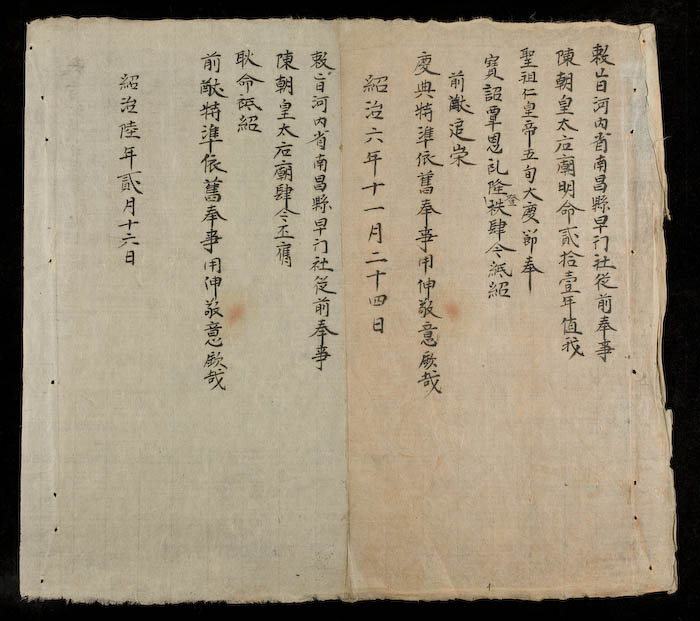 敕旨河內省南昌縣旱門社從前奉事
陳朝皇太后廟明命貳拾壹年值我
聖祖仁皇帝五旬大慶節奉
寶詔覃恩禮隆登秩肆今祗紹
前猷追崇
慶典特準依舊奉事用伸敬意厥哉
紹治六年十一月二十四日
敕旨河內省南昌縣旱門社從前奉事
陳朝皇太后廟肆今丕膺
耿命祗紹
前猷特準依舊奉事用伸敬意厥哉
紹治陸年貳月十六日